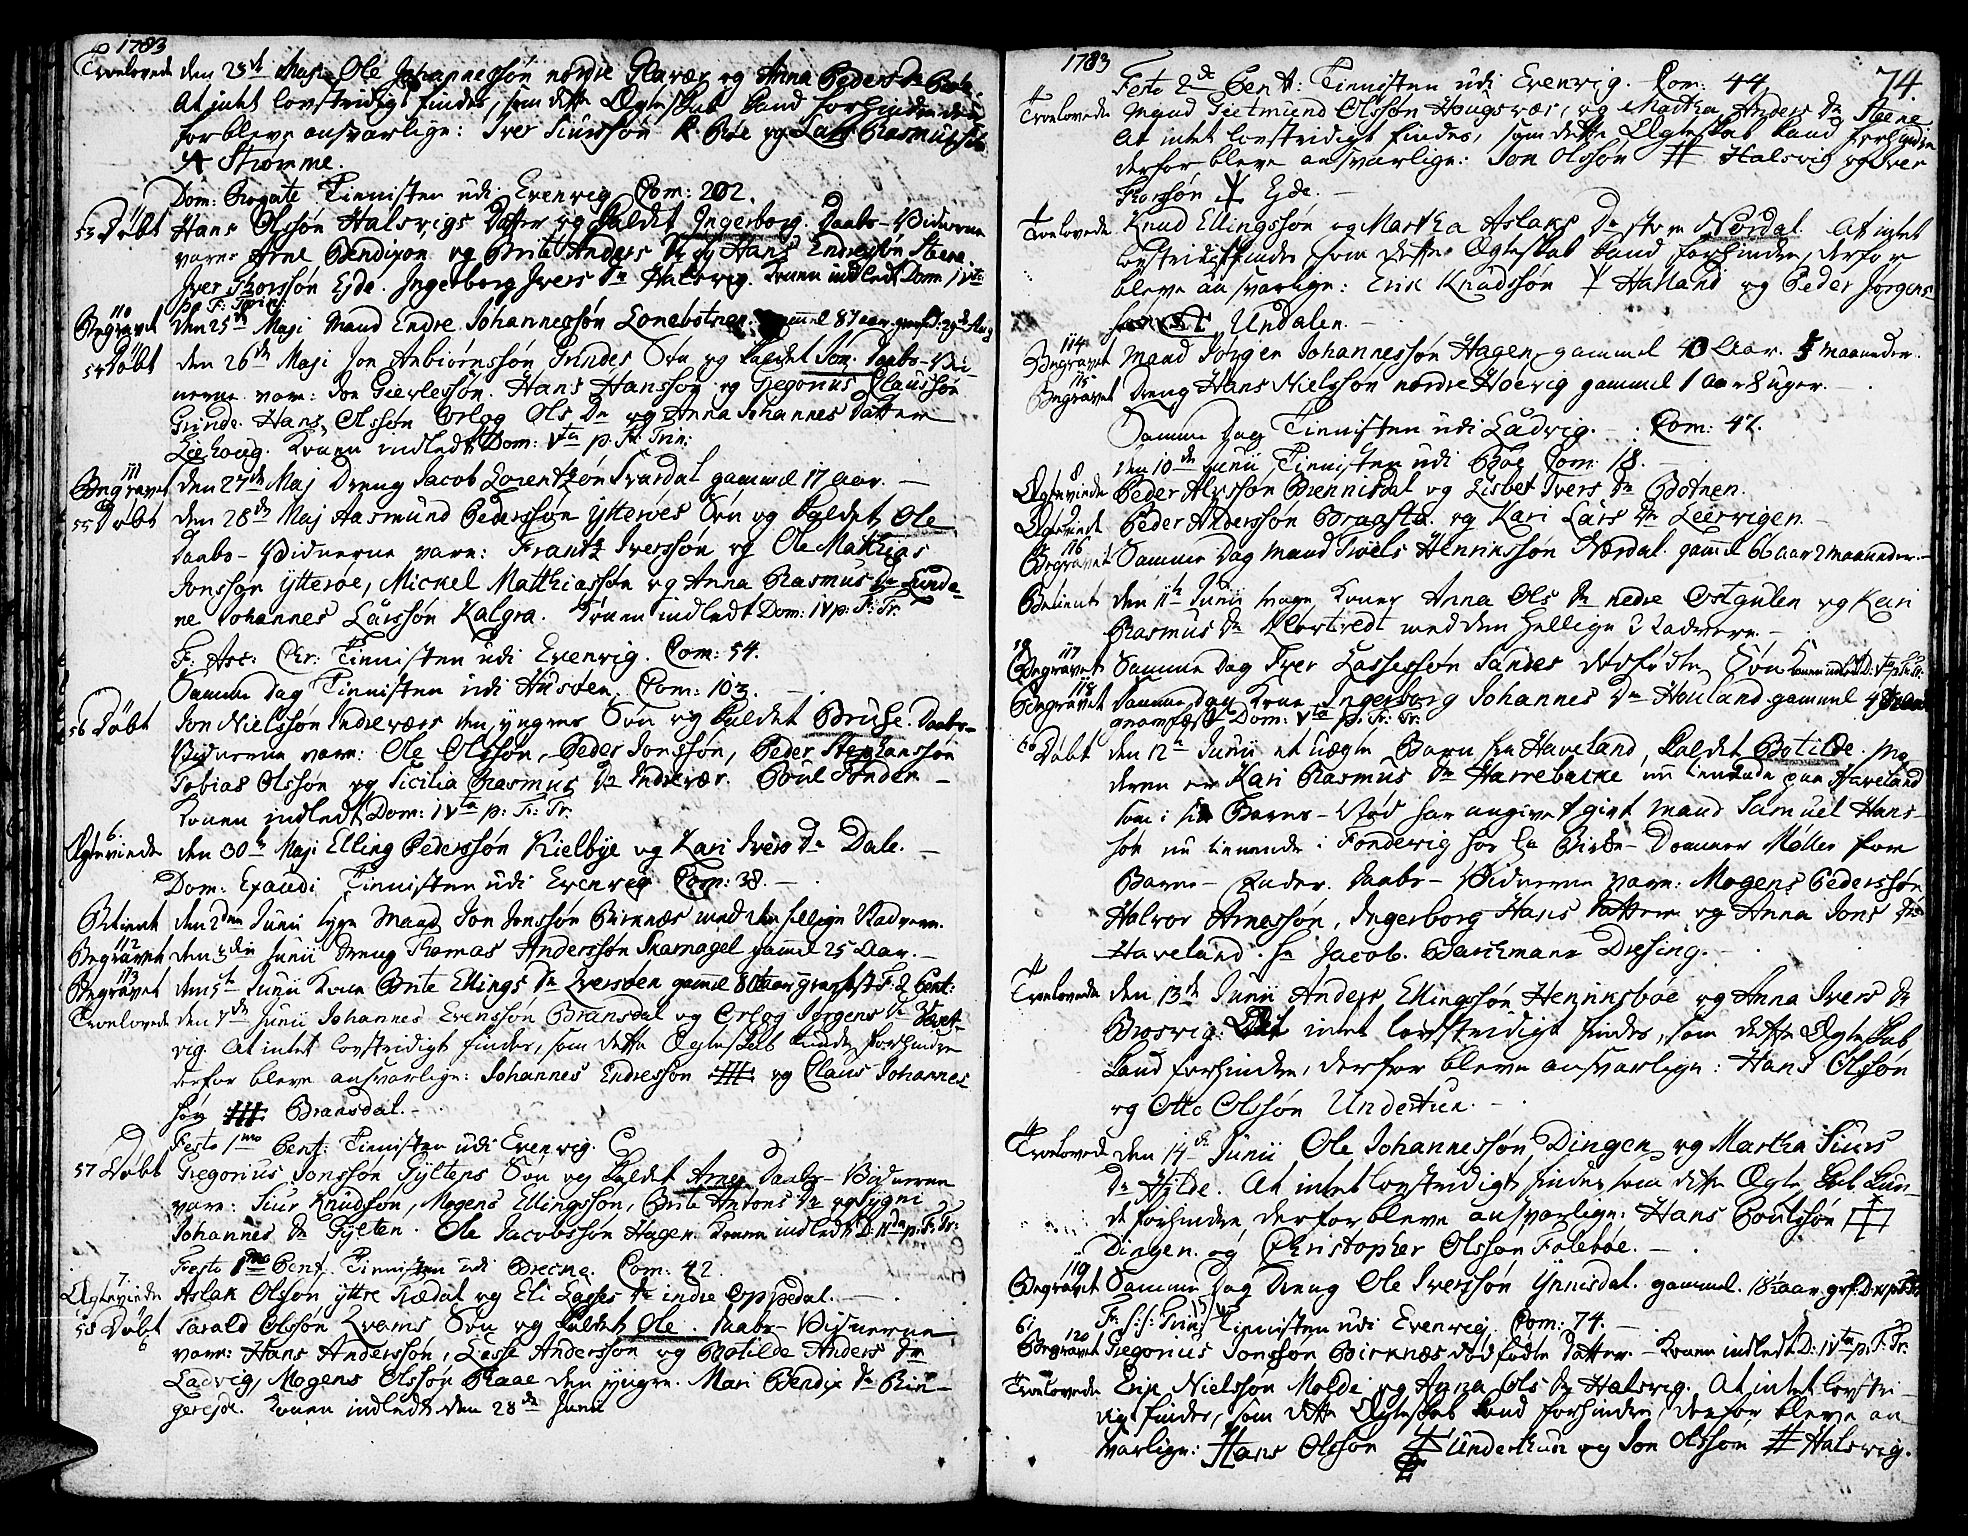 1783
Troelovede den 23de Maji Ole Johannessøn nordre Glavær og Anna Peders Dr
At intet lovstridigt findes, som dette Ægteskab kand forhindre der
for bleve ansvarlige: Iver Siurssøn R. Bøe og Lars Rasmussøn
A Strømme.
Dom: Rogate Tienisten udi Evenvig. Com: 202.
53 Døbt Hans Olssøn Halsvigs Datter og kaldet Ingerborg. Daabs-Vidnerne
vare Arne Bendixøn og Brite Anders Dr og Hans Endresøn Steene
Iver Thorssøn Eyde. Ingerborg Ivers Dr Halsvig. Konen indledt Dom: IVta
p. F: Trin:
110
Begravet den 25de Maji Mand Endre Johannessøn Lonebotnen gammel 87 aar
54 Døbt den 26de Maji Jon Anbiørnssøn Grindes Søn og kaldet Jon. Daabs-Vid-
nerne vare: Jon Gierlessøn, Hans Hanssøn og Gregorius Claussøn
Grinde. Hans Olssøn Ørlog Ols Dr og Anna Johannes Datter
Leehoug. Konen indledt Dom: Vta p. F. Trin:
111
Begravet den 27de Maj Dreng Jacob Lorentzøn Svardal gammel 17 aar.
55 Døbt den 28de Maj Aasmund Pederssøn Ytterøes Søn og kaldet Ole
Daabs-Vidnerne vare: Frantz Iverssøn og Ole Mathias
Jonssøn Ytterøe, Mickel Matthiassøn og Anna Rasmus Dr Sunde-
ne Johannes Larssøn Kalgra. Konen indledt Dom: IV p: F: Tr.
F: Asc: Chr: Tienisten udi Evenvig. Com: 54.
Samme Dag Tienisten udi Husøen, Com: 103.
56 Døbt Jon Nielssøn Indreværs den yngres Søn og kaldet Bruse. Daabs-
Vidnerne vare: Ole Olssøn, Peder Jonssøn, Peder Stephanssøn
Tobias Olssøn og Sicilia Rasmus Dr Indrevær. Poul
Konen indledt Dom: IVta p: F: Tr.
6.
Ægteviede den 30te Maji Elling Pederssøn Kielbye og Kari Ivers Dr Dale.
Dom: Exaudi Tienisten udi Evenvig Com: 38.
Betient den 2den Junii syge Mand Jon Jonssøn Birknæs med den hellige Nadvere.
112
Begravet den 3die Junii Dreng Thomas Anderssøn Skarnagel gammel 25 Aar.
113
Begravet den 5te Junii Kone Brite Ellings Dr Qversøen gammel 80 aar grafæst F: 2 Pent:
Troelovede den 7de Junii Johannes Evenssøn Bransdal og Ørlog Jørgens Dr
vig. At intet lovstridigt findes, som dette Ægteskab kunde forhindre
derfor bleve ansvarlige: Johannes Endressøn og Claus Johannes
søn Bransdal.
Festo 1mo Pent: Tienisten udi Evenvig.
57 Døbt Gregorius Jonssøn Gyltens Søn og kaldet Arne. Daabs-Vidnerne
vare: Siur Knudssøn, Mogens Ellingssøn, Brite Antons Dr og Sygni
Johannes Dr Gylten. Ole Jacobssøn Hagen. Konen indledt D: IIda p: F: Tr:
Festo 1mo Pent. Tienisten udi Brecke. Com: 42.
7.
Ægteviede Aslak Olssøn yttre Tredal og Eli Lasses Dr indre Oppedal.
58 Døbt Harald Olssøn Qvams Søn og kaldet Ole. Daabs-Vidnerne
vare: Hans Anderssøn, Lasse Anderssøn og Botilde Anders Dr
Ladvig, Mogens Olssøn Raae den yngre. Mari Bendix Dr Rin-
gereide. Konen indledt den 28de Junii
1783
74.
Festo 2de Pent: Tienisten udi Evenvig. Com: 44,
Troelovede Mand Gietmund Olssøn Hougsvær, og Martha Anders Dr Steene
At intet lovstridigt findes, som dette Ægteskab kand forhindre
derfor bleve ansvarlige: Jon Olssøn Halsvig og Iver
Thorssøn Ejde.
Troelovede Knud Ellingssøn og Martha Aslaks Dr store Nordal. At intet
lovstridigt findes som dette Ægteskab kand forhindre, derfor
bleve ansvarlige: Erik Knudssøn Halland og Peder Jørgens-
søn Undalen.
114
Begravet Mand Jørgen Johannessøn Hagen gammel 40 Aar. 5 maaneder.
115
Begravet Dreng Hans Nielssøn nordre Hoevig gammel 1 aar 8 uger.
Samme Dag Tienisten udi Ladvig. Com: 42.
den 10de Junii Tienisten udi Bøe Com: 18.
8
Ægteviede Peder Alvssøn Brennisdal og Lisbet Ivers Dr Botnen.
Ægteviede Peder Anderssøn Braasta og Kari Lars Dr Leervigen.
116
Begravet Samme Dag Mand Troels Henrikssøn Nordal gammel 66 aar 2 maaneder.
Betient den 11te Junii svage Koner Anna Ols Dr nedre Ostgulen og Kari
Rasmus Dr Hortvedt med den hellige Nadvere.
59 117
Begravet Samme Dag Iver Lassessøn Sandes dødfødte Søn Konen indledt D: Vta p: F: Tr.
118
Begravet Samme Dag Kone Ingerborg Johannes Dr Houland gammel
gravfæst Dom: Vta p. F: Tr:
60 Døbt den 12te Junii et uægte Barn fra Haveland, kaldet Botilde. Mo-
deren er Kari Rasmus Dr Harrebacke nu tienende paa Haveland
som i sin Barns-Nød har angivet gift Mand Samuel Hans-
søn nu tienende i Fondevig hos Sr Birke-Dommer Møller som
Barne-Fader. Daabs-Vidnerne vare: Mogens Pederssøn
Halvor Arnessøn, Ingerborg Hans Datter og Anna Jons Dr
Haveland. Sr Jacob Barchmann Dresing.
Troelovede den 13de Junii Anders Ellingssøn Henriksbøe og Anna Ivers Dr
Brosvig. At intet lovstridigt findes, som dette Ægteskab
kand forhindre, derfor bleve ansvarlige: Hans Olssøn
og Otto Olssøn Undertun.
Troelovede den 14de Junii Ole Johannessøn Dingen og Martha Siurs
Dr Hylde. At intet lovstridigt findes som dette Ægteskab kun-
de forhindre, derfor bleve ansvarlige: Hans Poulssøn
Dingen og Christopher Olssøn Folebøe.
119
Begravet Samme Dag Dreng Ole Iverssøn Ynnisdal. gammel
F: S: S: Trin: Tienisten udi Evenvig, Com: 74.
61 120
Begravet Gregorius Jonssøn Birknæs dødfødte Datter. Konen indledt D: IVta p: F: Tr.
Troelovede Erik Nielssøn Molde og Anna Ols Dr Halsvig. At intet lovstri-
digt findes, som dette Ægteskab kand forhindre, derfor bleve an-
svarlige: Hans Olssøn Undertun og Jon Olssøn Halsvig.